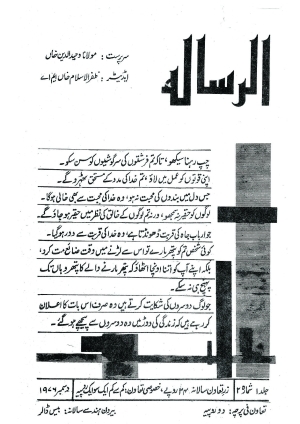 الرساله
سرپرست: مولانا وحید الدین خاں
ایڈیٹر: ظفر الاسلام خاں ایم اے
چپ رہنا سیکھو، تاکہ تم فرشتوں کی سرگوشیوں کو سن سکو۔
اپنی قوتوں کو عمل میں لاؤ، تم خدا کی مدد کے مستحق بٹھہرو گے۔
جس دل میں بندوں کی محبت نہ ہو، وہ خدا کی محبت سے بھی خالی ہوگا۔
لوگوں کو حقیر نہ سمجھو، ورنہ تم لوگوں کے خالق کی نظر میں حقیر ہو جاؤ گے۔
جو ارباب جاہ کی قربت ڈھونڈتا ہے، وہ خدا کی قربت سے دور ہوگیا۔
کوئی شخص تم کو پتھر مارے تو اس سے لڑنے میں وقت ضائع مت کرو،
بلکہ اپنے آپ کو اتنا اونچا اٹھاؤ کہ پتھر مارنے والے کا پتھر وہاں تک
پہنچ ہی نہ سکے۔
جو لوگ دوسروں کی شکایت کرتے ہیں وہ صرف اس بات کا اعلان
کر رہے ہیں کہ زندگی کی دوڑ میں وہ دوسروں سے پیچھے ہوگئے۔
جلد ۱ شمارہ ۲ زر تعاون سالانہ ۲۴ روپے، خصوصی تعاون: کم سے کم ایک سو ایک روپیہ دسمبر ۱۹۷۶
تعاون فی پرچہ: دو روپیہ بیرون ہند سے سالانہ: بیس ڈالر